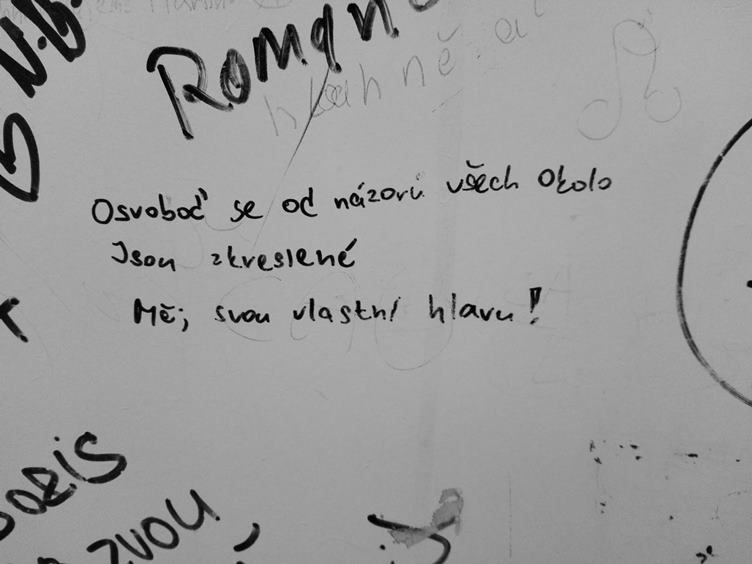 N.B.
Roman
Osvoboď se od názorů všech okolo
Jsou zkreslené
Měj svou vlastní hlavu!
zvou